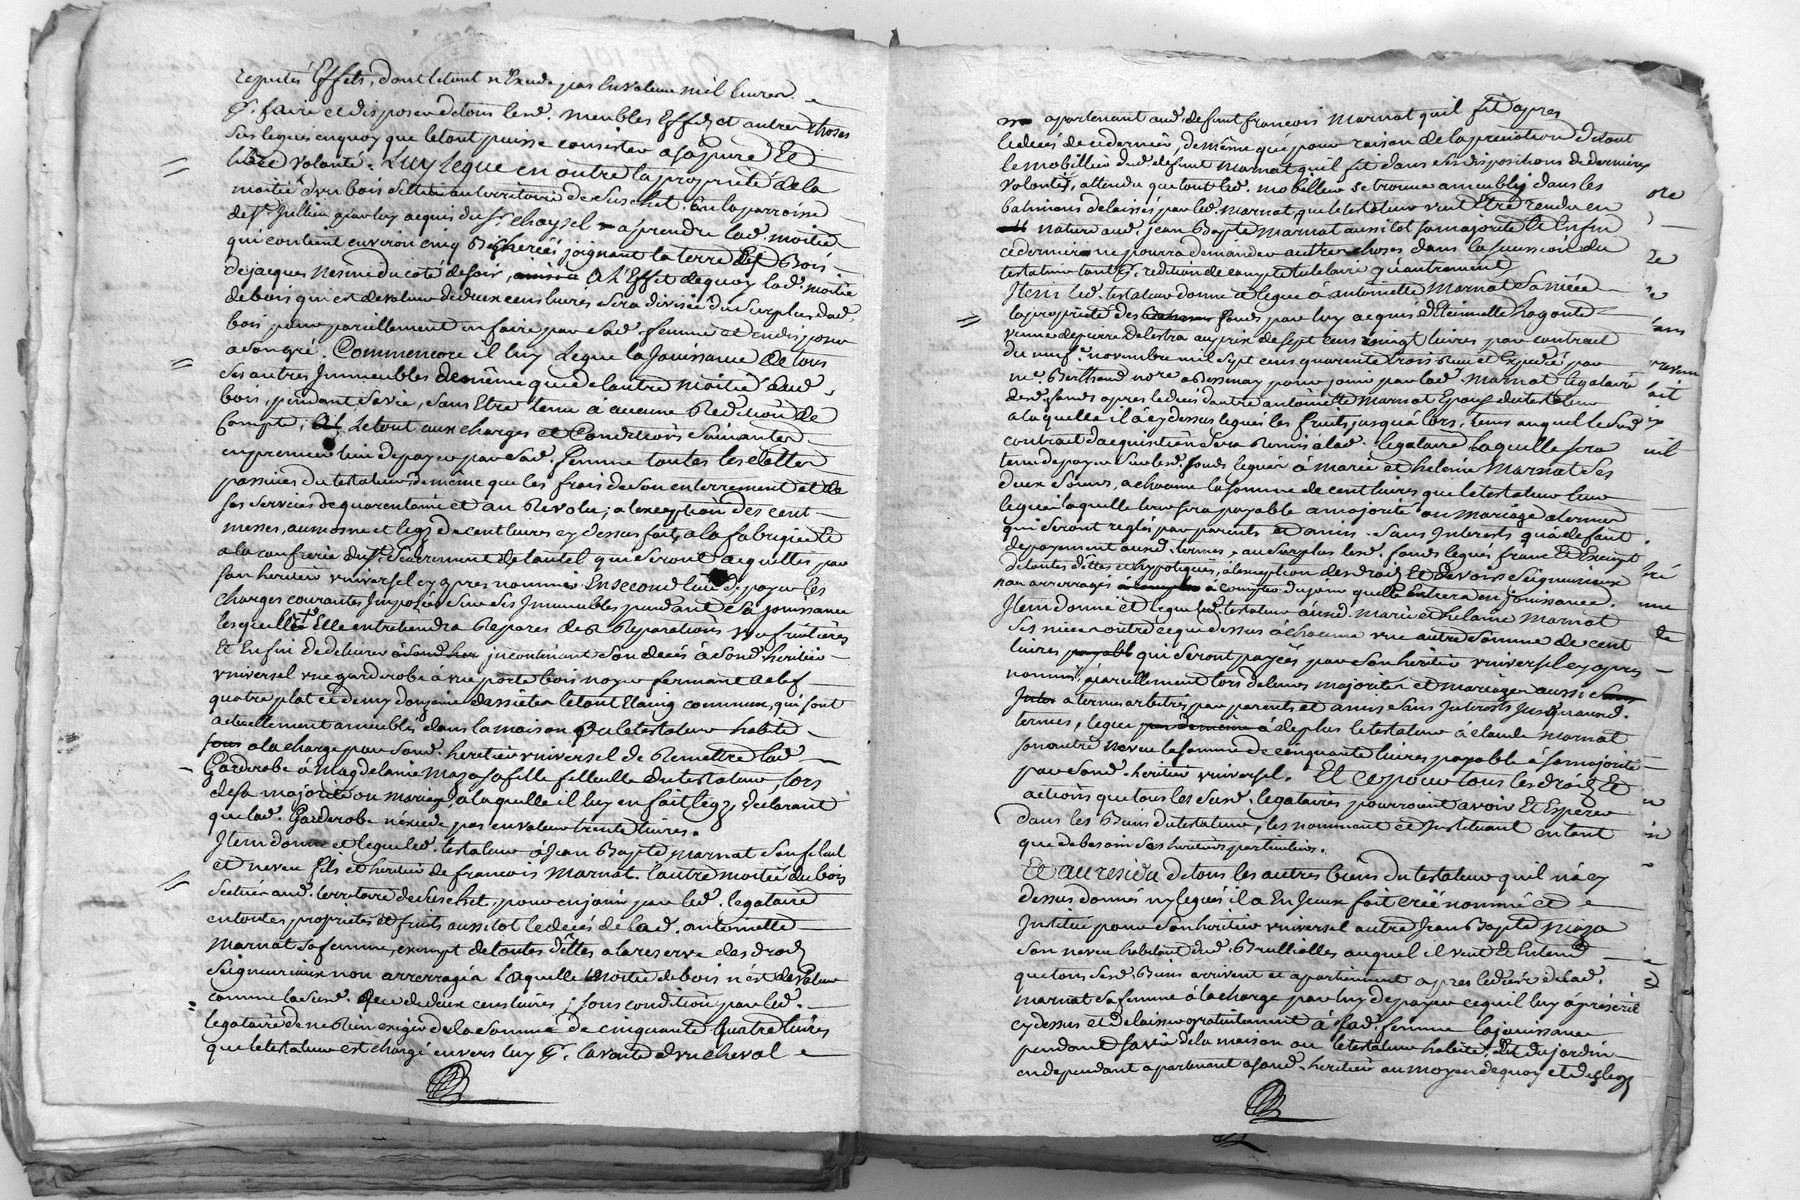 reputés Effets, dont letout n'Excede pas envaleur mil livres
pr. faire et disposer detous lesd. meubles Effets et autres choses
Sus leguées enquoy que letout puisse consister asapure Et
libre volonté. Luy legue en outre la propriété dela
moitié d'un bois Scitué auterritoire de Suschet. En la parroisse
de St. Jullien par luy acquis du Sr. chaysel a prendre lad. moitié
qui contient environ cinq Bicherées joignant la terre Et Bois
de jacques mesme du coté desoir, A l'Effet dequoy lad. moitié
debois qui est devaleur dedeux cens livres sera divisée du Surplus dud.
bois pour pareillement en faire par sad. femme et endisposer
asongré. Comm'encore il luy Legue la Jouissance de tous
Ses autres Immeubles demême que de lautre moitié dud.
bois, pendant Savie, sans Etre tenue à aucune Reddition de
Compte, Letout aux charges et Conditions Suivantes
enpremier lieu depayer par sad. femme toutes les dettes
passives du testateur demême que les frais deson enterrement et de
ses services de quarentaine et au Revolu, a lexception des cent
messes, aumosne et legs de cent livres cy dessus faits ala fabrique Et
ala confrerie du St. Sacrement delautel qui seront acquittés par
son heritier universel cy apres nommé. En second lieu de payer les
charges courantes Imposées Sur Ses Immeubles pendant Sa jouissance
lesquels Elle entretiendra Reparés de Reparations usufruitieres
Et Enfin dedelivrer incontinant son decés à Sond. heritier
universel une garderobe à une porte bois noyer fermant aclef
quatre plat et demy douzaine dassietes letout Etaing commun, qui sont
actuellement ameublés dans la maison que letestateur habite
ala charge par Sond. heritier universel de Remettre lad.
Garderobe à Magdelaine Maza sa fille filleulle du testateur, lors
desa majorité ou mariage, a laquelle il luy en fait legs, declarant
que lad. Garderobe n'excede pas envaleur trente livres.
Item donne et legue led. testateur à Jean Bapte. Marnat son filleul
et neveu fils et heritier de francois Marnat. l'autre moitié du bois
Scitué aud. territoire de Suschet, pour en jouir par led. legataire
entoutes proprietés et fruits aussitot ledecés de lad. antoinette
Marnat sa femme, exempt detoutes dettes ala reserve des droits
Seigneuriaux non arreragés Laquelle moitié debois n'est de valeur
comme la Susd. que de deux cens livres, sous condition par led.
legataire de ne Rien exiger de la somme de cinquante quatre livres
que letestateur est chargé envers luy pr. lavente d'un cheval
apartenant aud. defunt francois Marnat quil fit apres
ledecés de ce dernier, demême que pour raison de la prenation detout
le mobillier dud. defunt Marnat quil fit dans ses dispositions de dernieres
volontés, attendu que tout led. mobillier se trouve ameublé dans les
batimens delaissés par led. Marnat, que letestateur veut Etre rendu en
nature aud. jean Bapte Marnat aussitot sa majorité Et Enfin
cedernier ne pourra demander autres choses dans la succession du
testateur tant pr. redition de compte tutelaire qu'autrement
Item led. testateur donne et legue à antoinette Marnat Sa niéce
la propriété des fonds par luy acquis d'Etiennette Ragout
veuve de pierre Delestra au prix de sept cens vingt livres par contract
du neuf. novembre mil sept cens quarente trois Receu et Expedié par
me. Berthaud nore. a Bessenay pour jouir par lad. Marnat legataire
desd. fonds apres ledecés dautre antoinette Marnat Epouse du testateur
a laquelle il à cy dessus legués les fruits jusqu'à lors, tems auquel le Susd.
contract d'acquisition Sera Remis à lad. legataire Laquelle sera
tenue de payer Sur lesd. fonds legués à marie et helaine Marnat Ses
deux Sœurs, a chacune la somme de cent livres que le testateur leur
legue laquelle leur sera payable a majorité ou mariage a termes
qui Seront reglés par parents et amis. Sans Interests qu'a defaut
depayement ausd. termes, au surplus lesd. fonds legués francs Et Exempt
detoutes dettes et hypoteques, à lexception des droits Et devoirs Seigneuriaux
non arreragés à compter du jour quelle Entrera en jouissance.
Item donne et legue led. testateur ausd. Marie et helaine Marnat
Ses nieces outre ce que dessus à chacune une autre Somme de cent
livres qui Seront payées par Son heritier universel cy apres
nommé, pareillement lors deleurs majorités et mariages aussi
a termes arbitrés par parents et amis Sans Interests Jusqu'ausd.
termes, legue à deplus letestateur à claude Marnat
son autre neveu la somme de cinquante livres payable à Sa majorité
par Sond. heritier universel. Et ce pour tous les droits Et
actions que tous les Susd. legataires pourroient avoir Et Esperer
dans les Biens du testateur, les nommant et Instituant entant
que de besoin Ses heritiers particuliers.
Et au residu detous les autres biens du testateur quil n'a cy
dessus donnés ny legués il a En Iceux fait créé nommé et
Institué pour Son heritier universel autre Jean Bapte Maza
son neveu habitant dud. Brullioles auquel il veut Et Entend
que tous Sesd. Biens arrivent et apartiennent apres ledecés de lad.
Marnat Sa femme à la charge par luy de payer ce quil luy a prescrit
cy dessus et delaisser gratuitement à sad. femme la jouissance
pendant Savie dela maison ou letestateur habite, Et du jardin
en dependant apartenant a sond. heritier au moyen dequoy et des legs